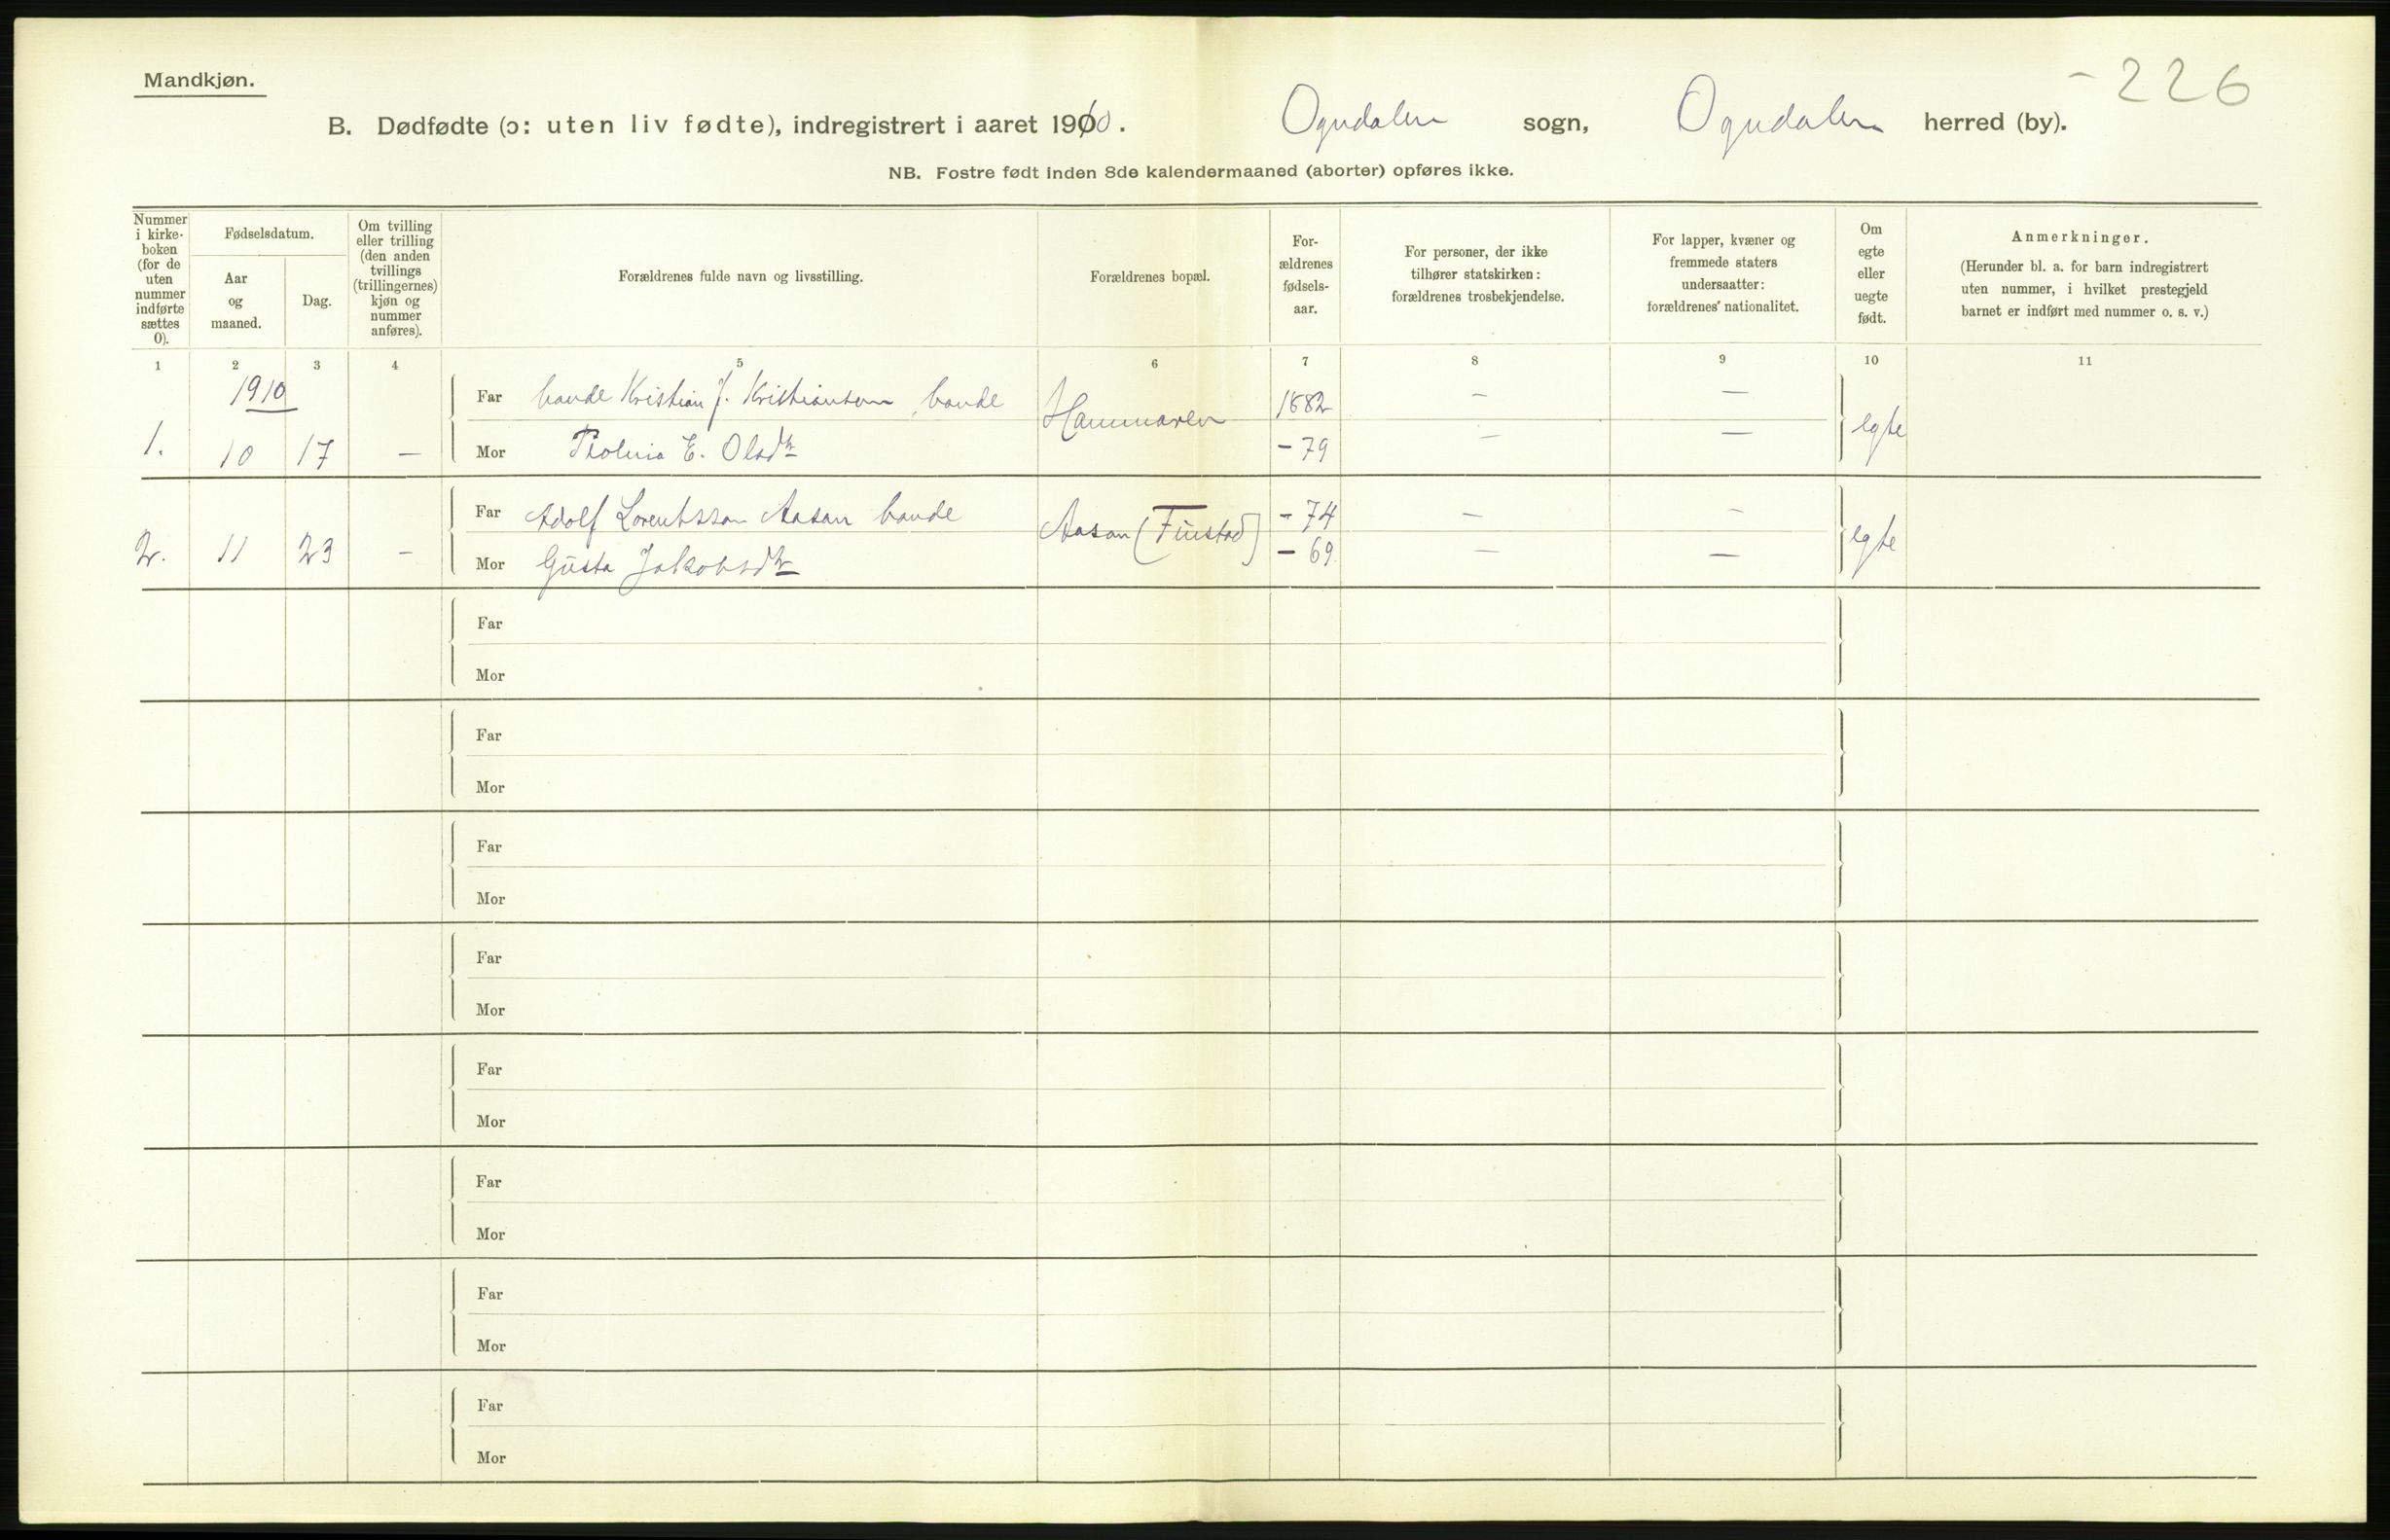 Mandkjøn.
-226
B. Dødfødte (ɔ: uten liv fødte), indregistrert i aaret 1910. Ogndalen sogn, Ogndalen herred (by).
NB. Fostre født inden 8de kalendermaaned (aborter) opføres ikke.
Nummer i kirke- boken (for de uten nummer indførte sættes 0).
Fødselsdatum.
Aar og maaned.
Dag.
Om tvilling eller trilling (den anden tvillings (trillingernes) kjøn og nummer anføres).
Forældrenes fulde navn og livsstilling.
Forældrenes bopæl.
For- ældrenes fødsels- aar.
For personer, der ikke tilhører statskirken: forældrenes trosbekjendelse.
For lapper, kvæner og fremmede staters undersaatter: forældrenes' nationalitet.
Om egte eller uegte født.
Anmerkninger.
(Herunder bl. a. for barn indregistrert uten nummer, i hvilket prestegjeld barnet er indført med nummer o. s. v.)
1 2 3 4 5 6 7 8 9 10 11
1910
Far bonde Kristian J. Kristiansen, bonde Hammaren 1882 — —
1. 10 17 — Mor E. Olsdtr - 79 — — egte
Far Adolf Lorentssen Aasan bonde Aasan (Finstad) - 74 — —
2. 11 23 — Mor Gusta Jakobsdtr - 69 — — egte
Far
Mor
Far
Mor
Far
Mor
Far
Mor
Far
Mor
Far
Mor
Far
Mor
Far
Mor